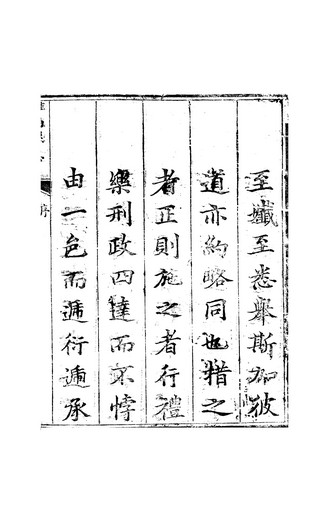 至纖至悉舉斯加彼
道亦約略同也措之
者正則施之者行禮
樂刑政四達而不悖
由一邑而遞衍遞承
序